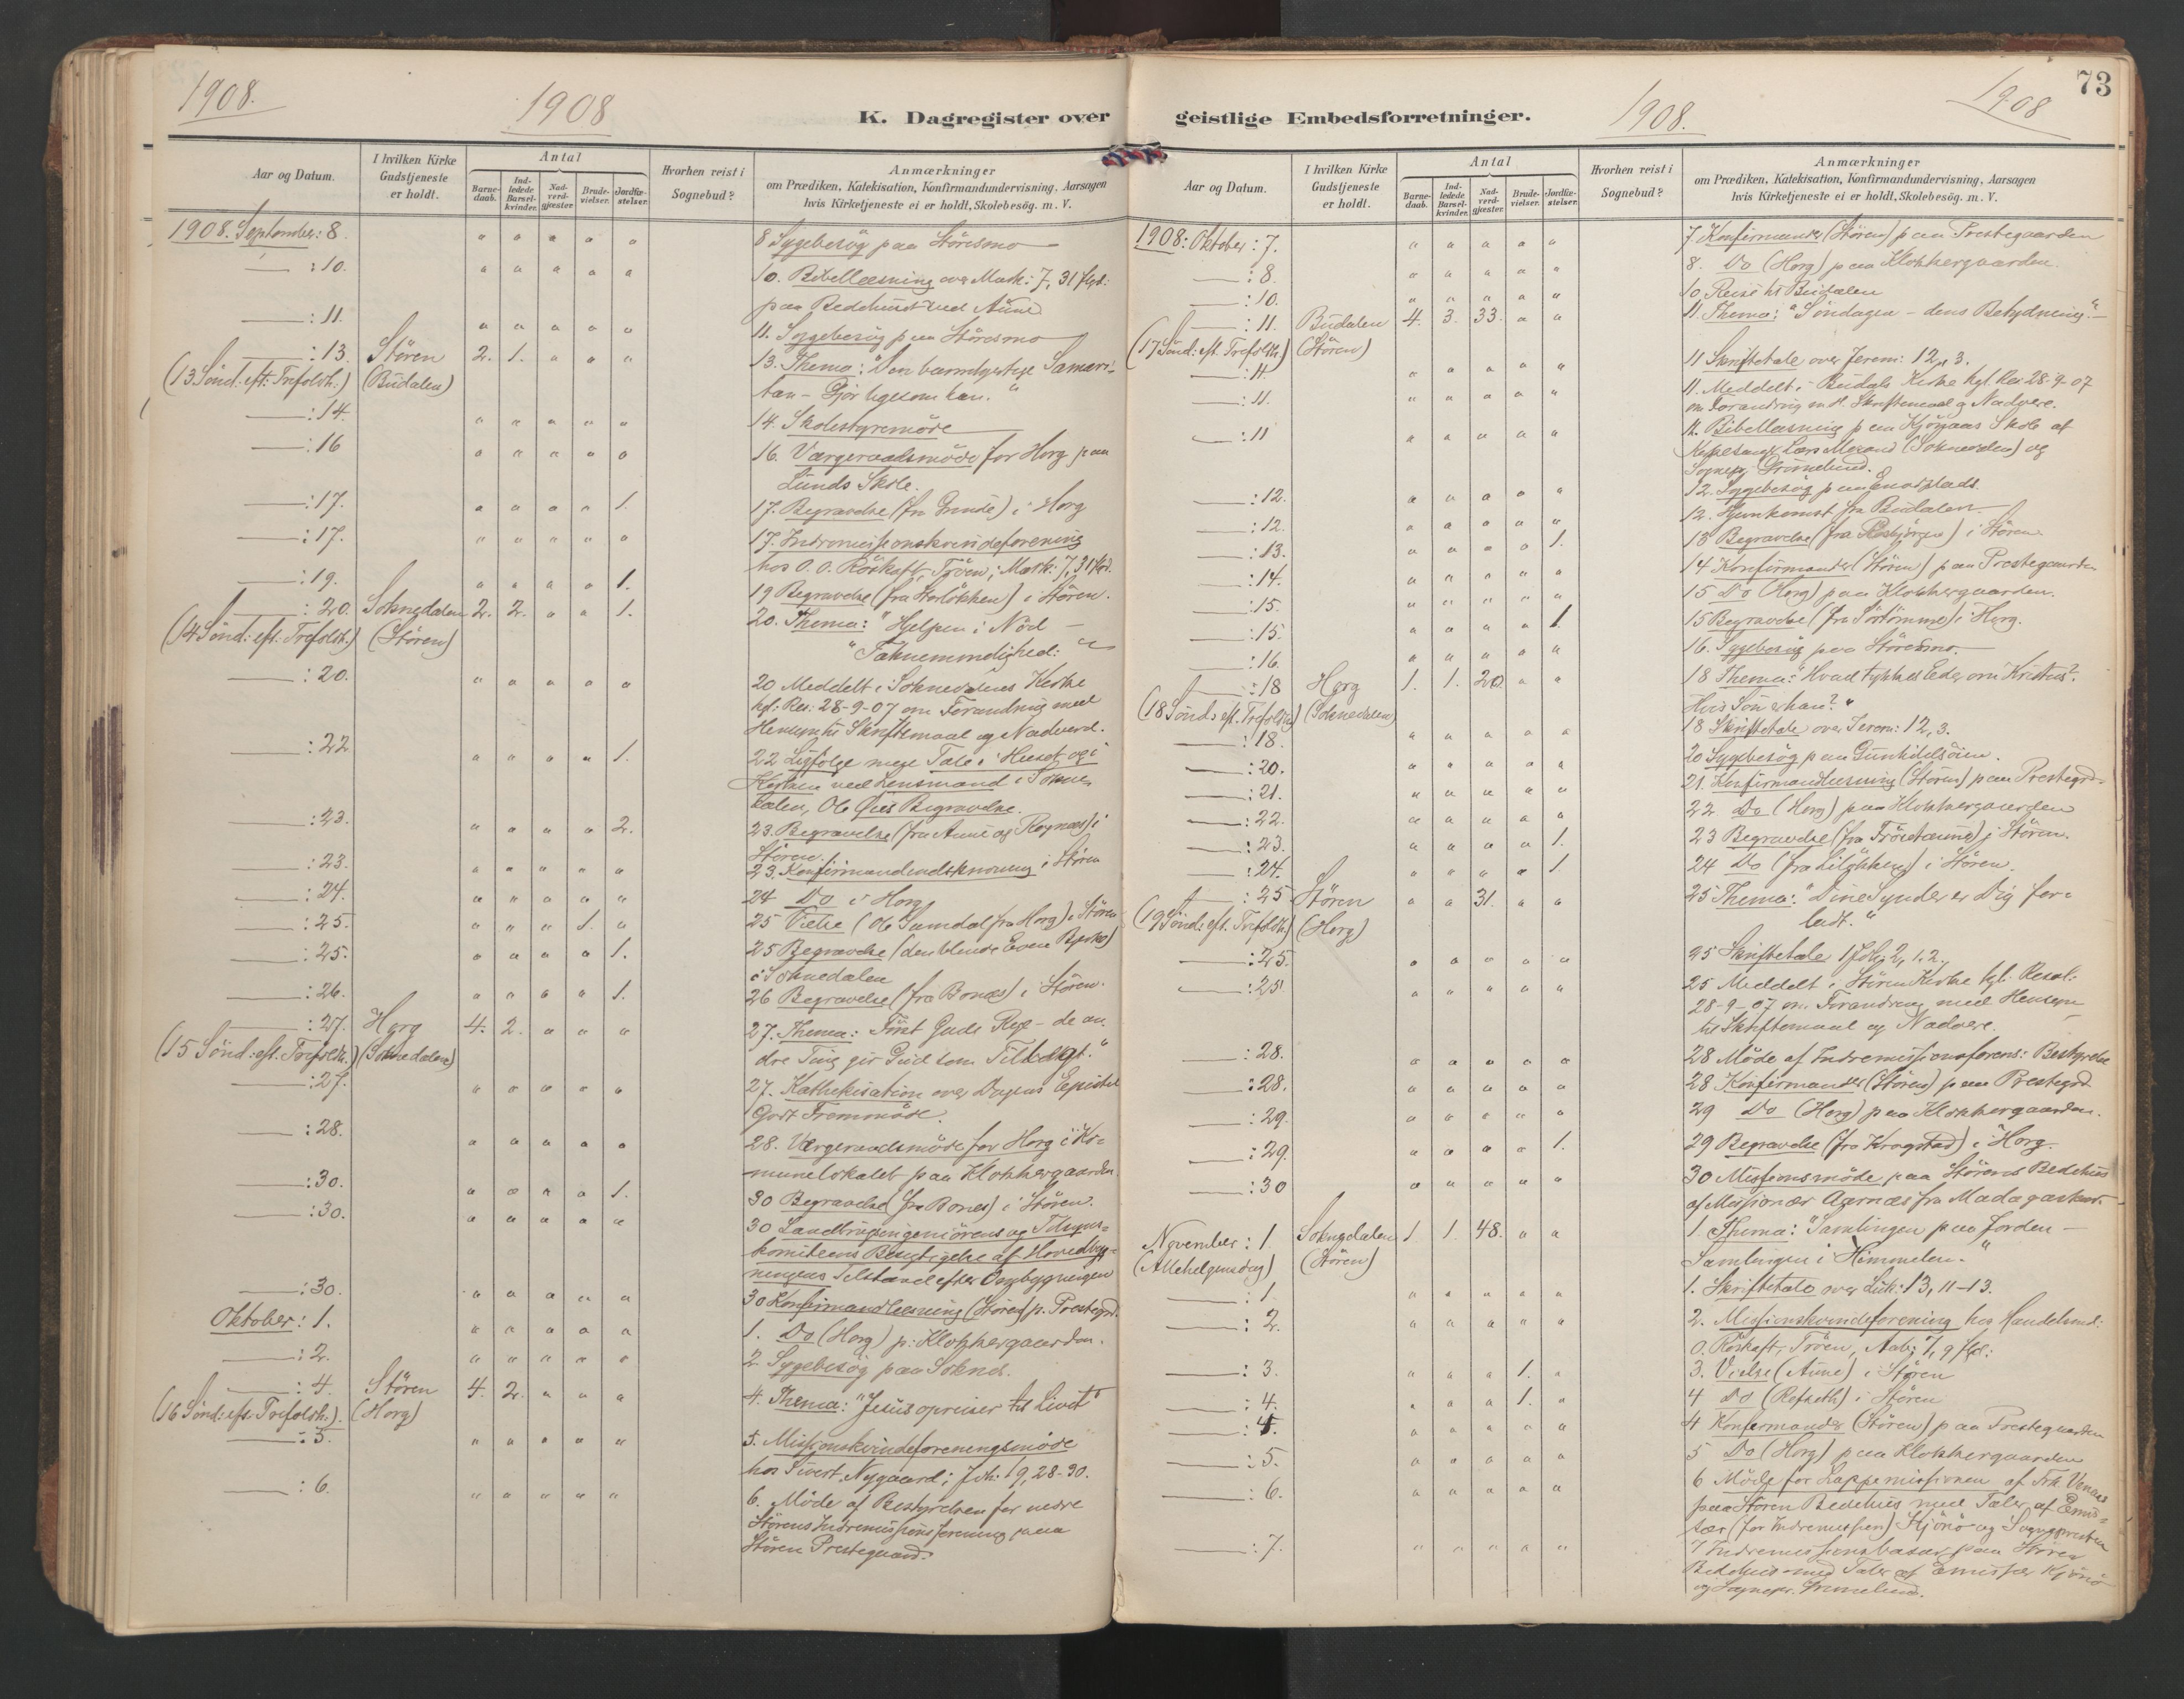 1908.
1908
K. Dagregister over
Aar og Datum.
I hvilken Kirke Gudstjeneste er holdt.
Antal
Barnedaab.
Indledede Barselkvinder.
Nadverdgjæster
Brudevielser.
Jordfæstelser.
Hvorhen reist i Sognebud?
Anmærkninger
om Prædiken, Katekisation, Konfirmandundervisning, Aarsagen
hvis Kirketjeneste ei er holdt, Skolebesøg. m. V.
1908. September: 8. " " " " " 8 Sygebesøg paa Störesmo
: 10. " " " " " 10. Bibellæsning over Mark: 7, 31 flgd:
paa Bedehuset ved Aune
: 11. " " " " " 11. Sygebesøg paa Störesmo
: 13. Stören 2. 1. " " " 13. Thema: "Den barmhjertige Samari-
(13 Sönd: eft: Trefoldh.) (Budalen) tan - Gjör ligesom han."
: 14. " " " " " 14. Skolestyremöde
: 16 " " " " " 16. Værgeraadsmöde for Horg paa
Lunds Skole.
: 17. " " " " 1. 17. Begravelse (fra ) i Horg
: 17. " " " " " 17. Indremissionskvindeforening
hos O. O. Röskaft, Tröen; Mark: 7, 31 flgd.
: 19. " " " " 1. 19 Begravelse (fra ) i Stören.
: 20. Soknedalen 2. 2. " " 1. 20. Thema: "Hjelpen i Nöd -
(14 Sönd: eft. Trefoldh.) (Stören) "Taknemmelighed: "
: 20. " " " " " 20 Meddelt i Soknedalens Kirke
kgl: Res: 28-9-07 om Forandring med
Hensyn til Skriftemaal og Nadverd.
: 22 " " " " 1. 22 Ligfölge med Tale i Huset og i
Kirken ved Lensmand i Sokne-
dalen, Ole Öies Begravelse.
: 23. " " " " 2. 23. Begravelse (fra Aune og Rognæs) i
Stören.
: 23. " " " " " 23. Konfirmandindskrivning i Stören
: 24. " " " " " 24 Do i Horg
: 25. " " " 1. " 25 Vielse (Ole fra Horg) i Stören
: 25. " " " " 1. 25 Begravelse (den blinde )
i Soknedalen
: 26. " " " " 1. 26 Begravelse (fra Bones) i Stören.
: 27. Horg 4. 2. " " " 27. Thema: Först Guds Rige - de an-
(15 Sönd: eft. Trefoldh.) (Soknedalen) dre Ting gir Gud som Tillægt."
: 27. " " " " " 27. Kathekisation over Dagens Epistel
Godt Fremmöde.
: 28. " " " " " 28. Værgeraadsmöde for Horg i Ko-
munelokalet paa Klokkergaarden.
: 30. " " " " 1. 30 Begravelse (fra Bones) i Stören.
: 30. " " " " " 30 Landbrugsingeniörens og Tilsyns-
komiteens Besigtigelse af Hovedbyg-
ningens Tilstand efter Ombygningen
: 30. " " " " " 30 Konfirmandlæsning (Stören) p. Prestegrd.
Oktober: 1. " " " " " 1. Do (Horg) p: Klokkergaarden.
: 2. " " " " " 2 Sygebesøg paa Soknes.
: 4. Stören 4. 2. " " " 4. Thema: "Jesus opreiser til Livet"
(16 Sönd: eft. Trefoldh.). (Horg)
: 5. " " " " " 5. Missionskvindeforeningsmöde
hos Sivert Nygaard; Joh: 19, 28-30.
: 6. " " " " " 6. Möde af Bestyrelsen for nedre
Störens Indremissionsforening paa
Stören Prestegaard.
73
1908.
1908
geistlige Embedsforretninger.
Aar og Datum.
I hvilken Kirke Gudstjeneste er holdt.
Antal
Barnedaab.
Indledede Barselkvinder.
Nadverdgjæster.
Brudevielser.
Jordfæstelser.
Hvorhen reist i Sognebud?
Anmærkninger
om Prædiken, Katekisation, Konfirmandundervisning, Aarsagen
hvis Kirketjeneste ei er holdt, Skolebesøg. m. V.
1908: Oktober: 7. " " " " " 7 Konfirmander (Stören) paa Prestegaarden
: 8. " " " " " 8. Do (Horg) paa Klokkergaarden.
: 10. " " " " " 10. Reise til Budalen
: 11. Budalen 4. 3. 33. " " 11. Thema: "Söndagen - dens Betydning."
(17 Sönd: eft. Trefoldh.) (Stören)
: 11. " " " " " 11 Skriftetale over Jerem: 12, 3.
: 11. " " " " " 11. Meddelt i Budals Kirke kgl. Res 28-9-07
om Forandring m. H. Skriftemaal og Nadvere.
: 11 " " " " " 11. Bibellæsning paa Skole af
Lars (Soknedalen) og
Sognepr. Grönnelund.
: 12. " " " " " 12. Sygebesøg paa
: 12. " " " " " 12. Hjemkomst fra Budalen.
: 13. " " " " 1. 13 Begravelse (fra ) i Stören
: 14. " " " " " 14 Konfirmander (Stören) paa Prestegaarden
: 15. " " " " " 15 Do (Horg) paa Klokkergaarden.
: 15. " " " " 1. 15 Begravelse (fra ) i Horg.
: 16. " " " " " 16. Sygebesøg paa Störesmo.
: 18 Horg 1. 1. 20. " " 18 Thema: "Hvad tykkes Eder om Kristus?
(18 Sönd: eft. Trefoldh.) (Soknedalen) Hvis Sön er han?"
: 18. " " " " " 18 Skriftetale over Jerem: 12, 3.
: 20. " " " " " 20 Sygebesøg paa Gunhildsöien.
: 21. " " " " " 21. Konfirmandlæsning (Stören) paa Prestegrd.
: 22. " " " " " 22 Do (Horg) paa Klokkergaarden
: 23. " " " " 1. 23 Begravelse (fra ) i Stören.
: 24. " " " " 1 24 Do (fra ) i Stören.
: 25 Stören " " 31. " " 25 Thema: "Dine Synder er Dig for-
(19 Sönd: eft. Trefoldh.) (Horg) ladt."
: 25. " " " " " 25 Skriftetale 1 Joh: 2, 1.2.
: 25 " " " " " 25 Meddelt i Stören Kirke kgl. Resol:
28-9-07 om Forandring med Hensyn
til Skriftemaal og Nadvere.
: 28. " " " " " 28 Möde af Indremissionsforens: Bestyrelse
: 28. " " " " " 28 Konfirmander (Stören) paa Prestegrd
: 29. " " " " " 29 Do (Horg) paa Klokkergaarden.
: 29. " " " " 1. 29 Begravelse (fra Krogstad) i Horg.
: 30 " " " " " 30 Missionsmöde paa Störens Bedehus
af Missionær Aarnæs fra Madagaskar.
November: 1. Soknedalen 1. 1. 48. " " 1 Thema: "Samlingen paa Jorden -
(Allehelgensdag) (Stören) Samlingen i Himmelen."
: 1. " " " " " 1. Skriftetale over Luk: 13, 11-13.
: 2. " " " " " 2. Missionskvindeforening hos Handelsmd:
O. Röskaft, Tröen, Aab: 7, 9 flgd:
: 3. " " " 1. " 3. Vielse (Aune) i Stören
: 4. " " " 1. " 4 Do (Refseth) i Stören
: 4. " " " " " 4 Konfirmander (Stören) paa Prestegaarden
: 5. " " " " " 5 Do (Horg) paa Klokkergaarden
: 6. " " " " " 6 Möde for Lappemissionen af Frk.
paa Stören Bedehus med Taler af Emis-
sær (for Indremissionen) Kjönö og Sognepresten
: 7. " " " " " 7 Indremissionsbasar paa Stören
Bedehus med Taler af Emissær Kjönö
og Sognepr. Grönnelund.